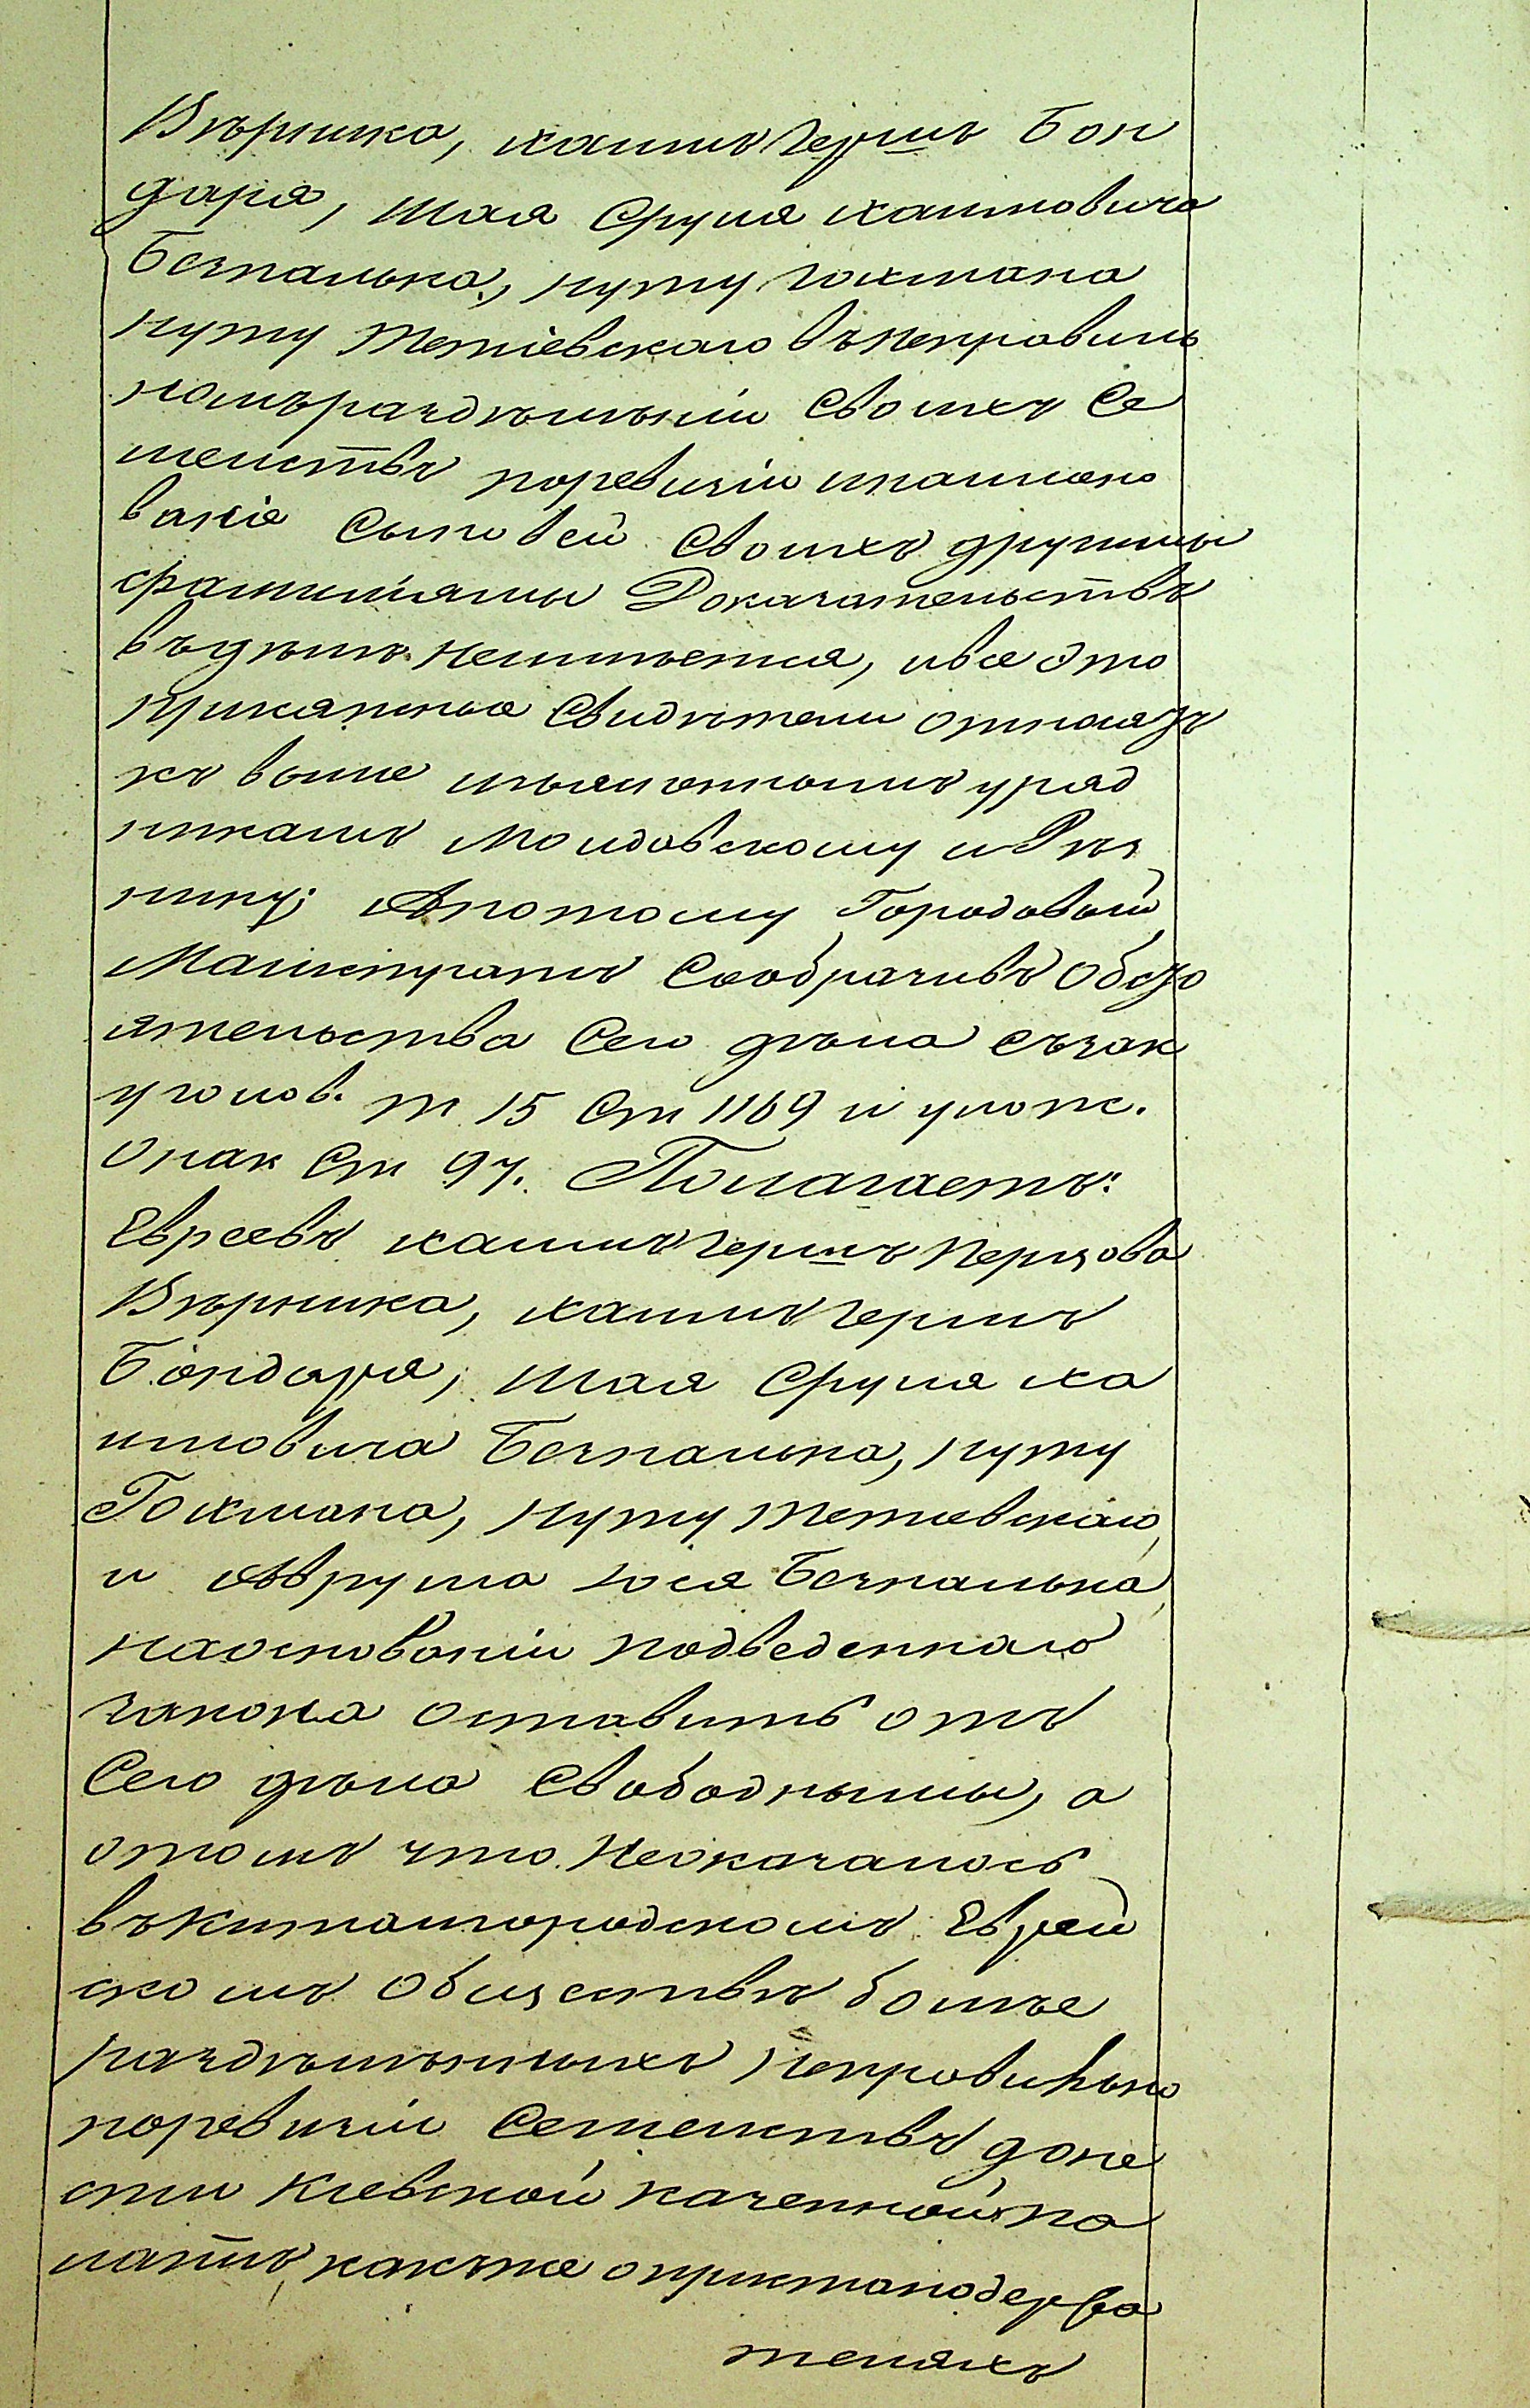 Вѣрника, хаимъ Гершъ Бон
даря, Шая Сруля хаимовича
Безпалька, нуту Гохмана
нуту Тетіевскаго въ неправиль
номъ раздѣленіи Своихъ Се
мействъ поревизіи и наимено
ванія Сыновей Своихъ другими
фамиліями Доказательствъ
въдѣлѣ неимѣется, ивсе Это
присяжные Свидѣтели относятъ
къ выше изъясненнымъ уряд
никамъ Молдовскому и Рѣз
нику; Апотому Городовой
Магистратъ Сообразивъ Обсто
ятельства Сего дѣла съзак
уголов. т 15 Ст 1169 и улож.
Онак Ст 97. Полагаетъ:
Евреевъ хаимъ Гершъ Перцова
Вѣрника, хаимъ Гершъ
Бондаря, Шая Сруля ха
имовича Безпалька, нуту
Гохмана, нуту Тетіевскаго,
и Аврума Іося Безпалька,
наоснованіи подведеннаго
закона Оставить отъ
Сего дѣла Свободными, а
отомъ что неоказалось
въкитайгородскомъ Еврей
скомъ Обществѣ болѣе
раздѣленныхъ неправильно
поревизіи Семействъ доне
сти Кіевской казенной па
латѣ, какъ и о пристанодержа
теляхъ